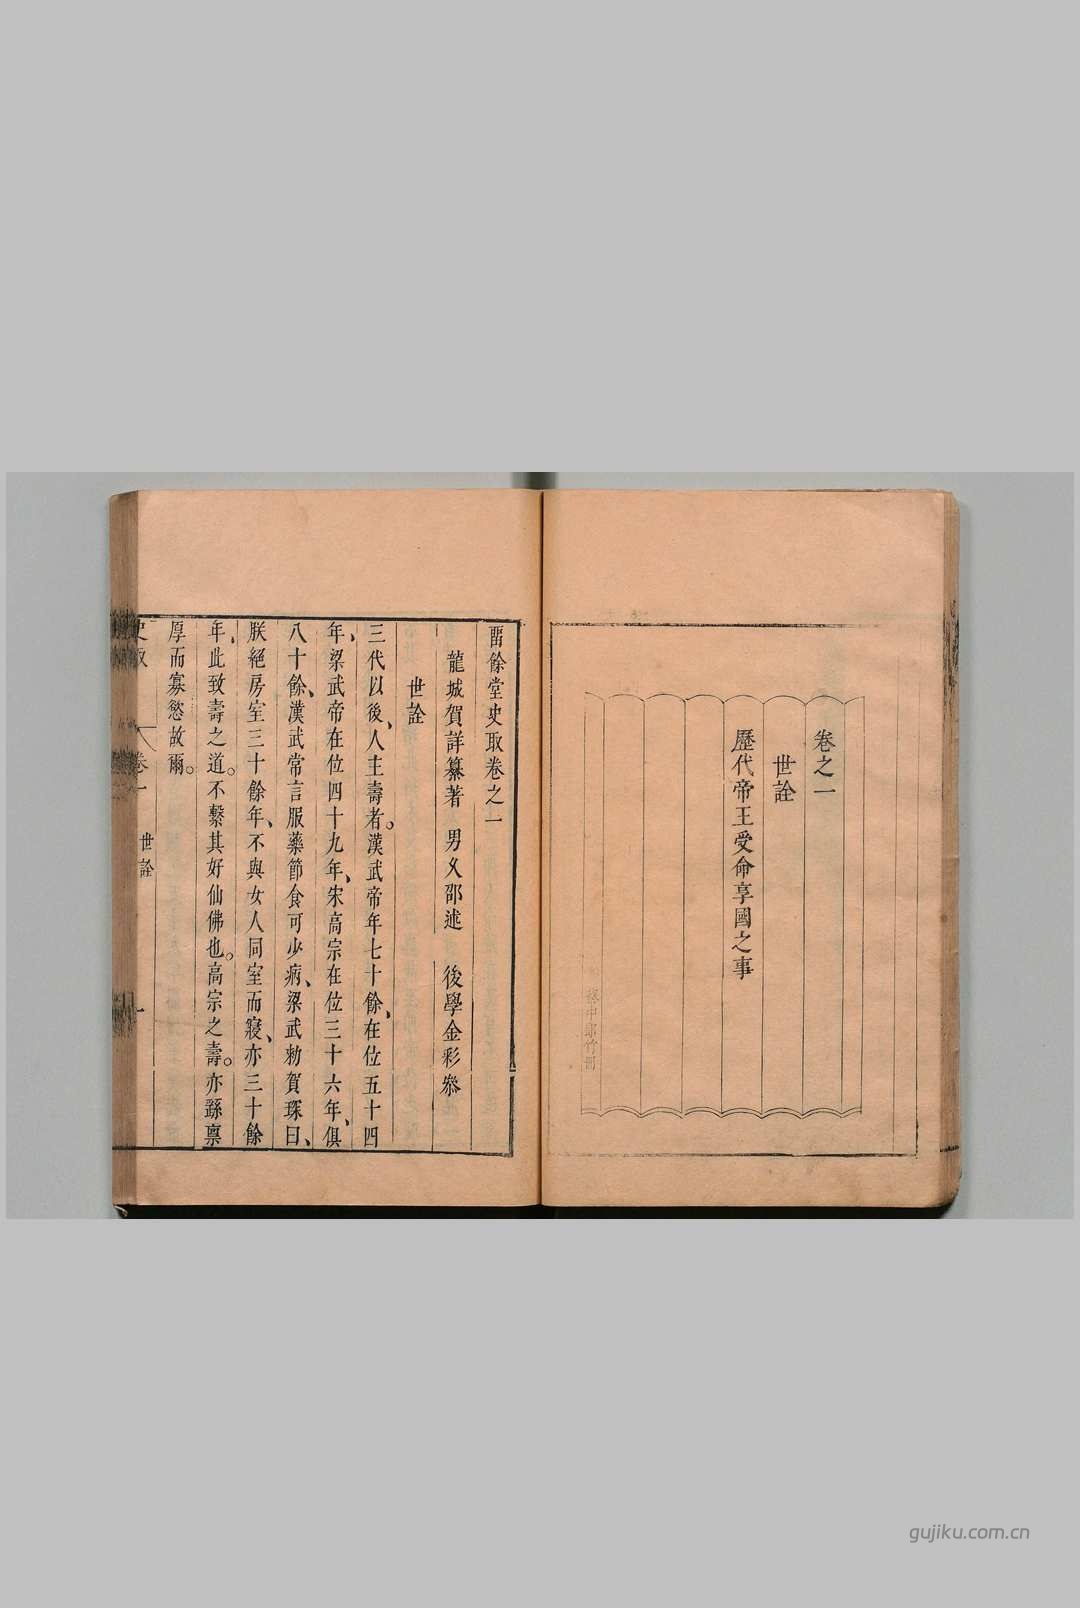 卷之一
世詮
歷代帝王受命享國之事
蔡中郎竹冊
畱餘堂史取卷之一
龍城賀詳纂著　男乂邵述　後學金彩叅
世詮
三代以後、人主壽者。漢武帝年七十餘、在位五十四
年、梁武帝在位四十九年、宋高宗在位三十六年、俱
八十餘、漢武常言服藥節食可少病、梁武勑賀琛曰、
朕絕房室三十餘年、不與女人同室而寢、亦三十餘
年、此致壽之道。不繫其好仙佛也。高宗之壽。亦繇禀
厚而寡慾故爾。
史取　卷一　世詮　一
gujiku.com.cn